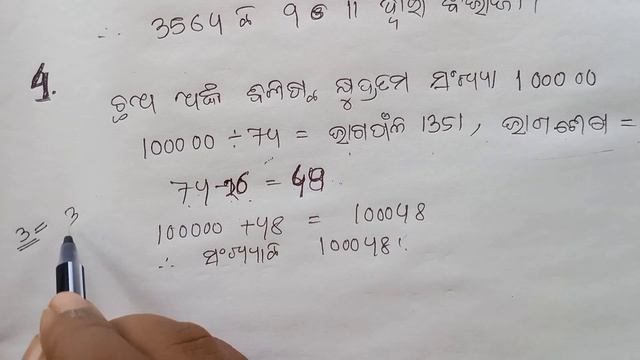 ∴ 3564 ଟି 9 ଓ 11 ଦ୍ୱାରା
4.
ଛଅ ଅଙ୍କ ବିଶିଷ୍ଟ କ୍ଷୁଦ୍ରତମ ସଂଖ୍ୟା 100000
100000 ÷ 74 = ଭାଗଫଳ 1351, ଭାଗଶେଷ =
74-26 = 48
100000 + 48 = 100048
∴ ସଂଖ୍ୟାଟି 100048।
3= 3